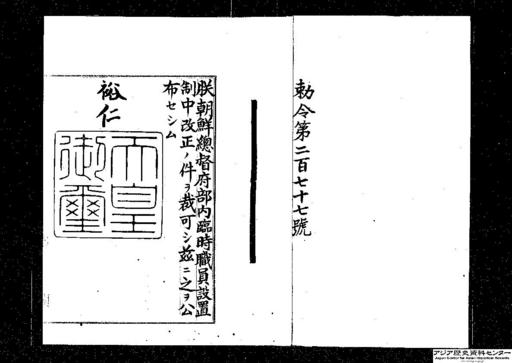 勅令第二百七十七號
朕朝鮮總督府部內臨時職員設置
制中改正ノ件ヲ裁可シ茲ニ之ヲ公
布セシム
裕仁
天皇
御璽
アジア歴史資料センター
Japan Center for Asian Historical Records